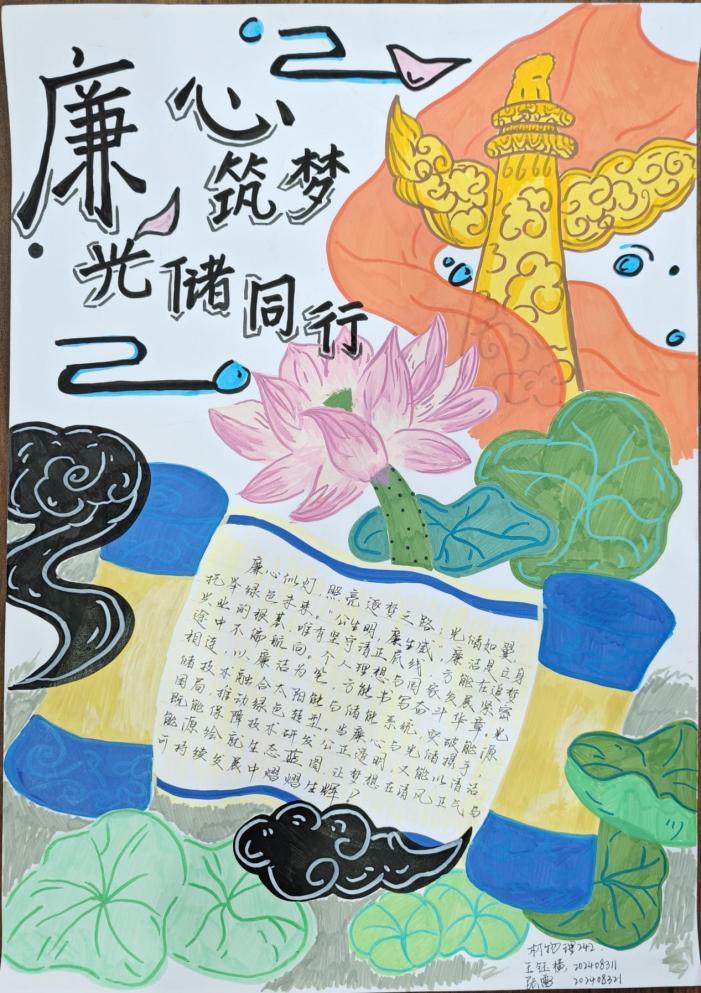 廉心筑梦
光储同行
廉心似灯,照亮逐梦之路;光储如翼,
托举绿色未来。"公生明,廉生威",廉洁是立身
兴业的根基,唯有坚守清正底线,方能在追梦
途中不偏航向。个人理想与国家发展紧密
相连,以廉洁为笔,方能书写奋斗华章。光
储技术融合太阳能与储能系统,突破能源
困局,推动绿色转型。当廉心与光储携手,
既能保障技术研发公正透明,又能以清洁
能源绘就生态蓝图,让梦想在清风正气与
可持续发展中熠熠生辉!
材物理242
王钰横 202408311
张雪 202408321